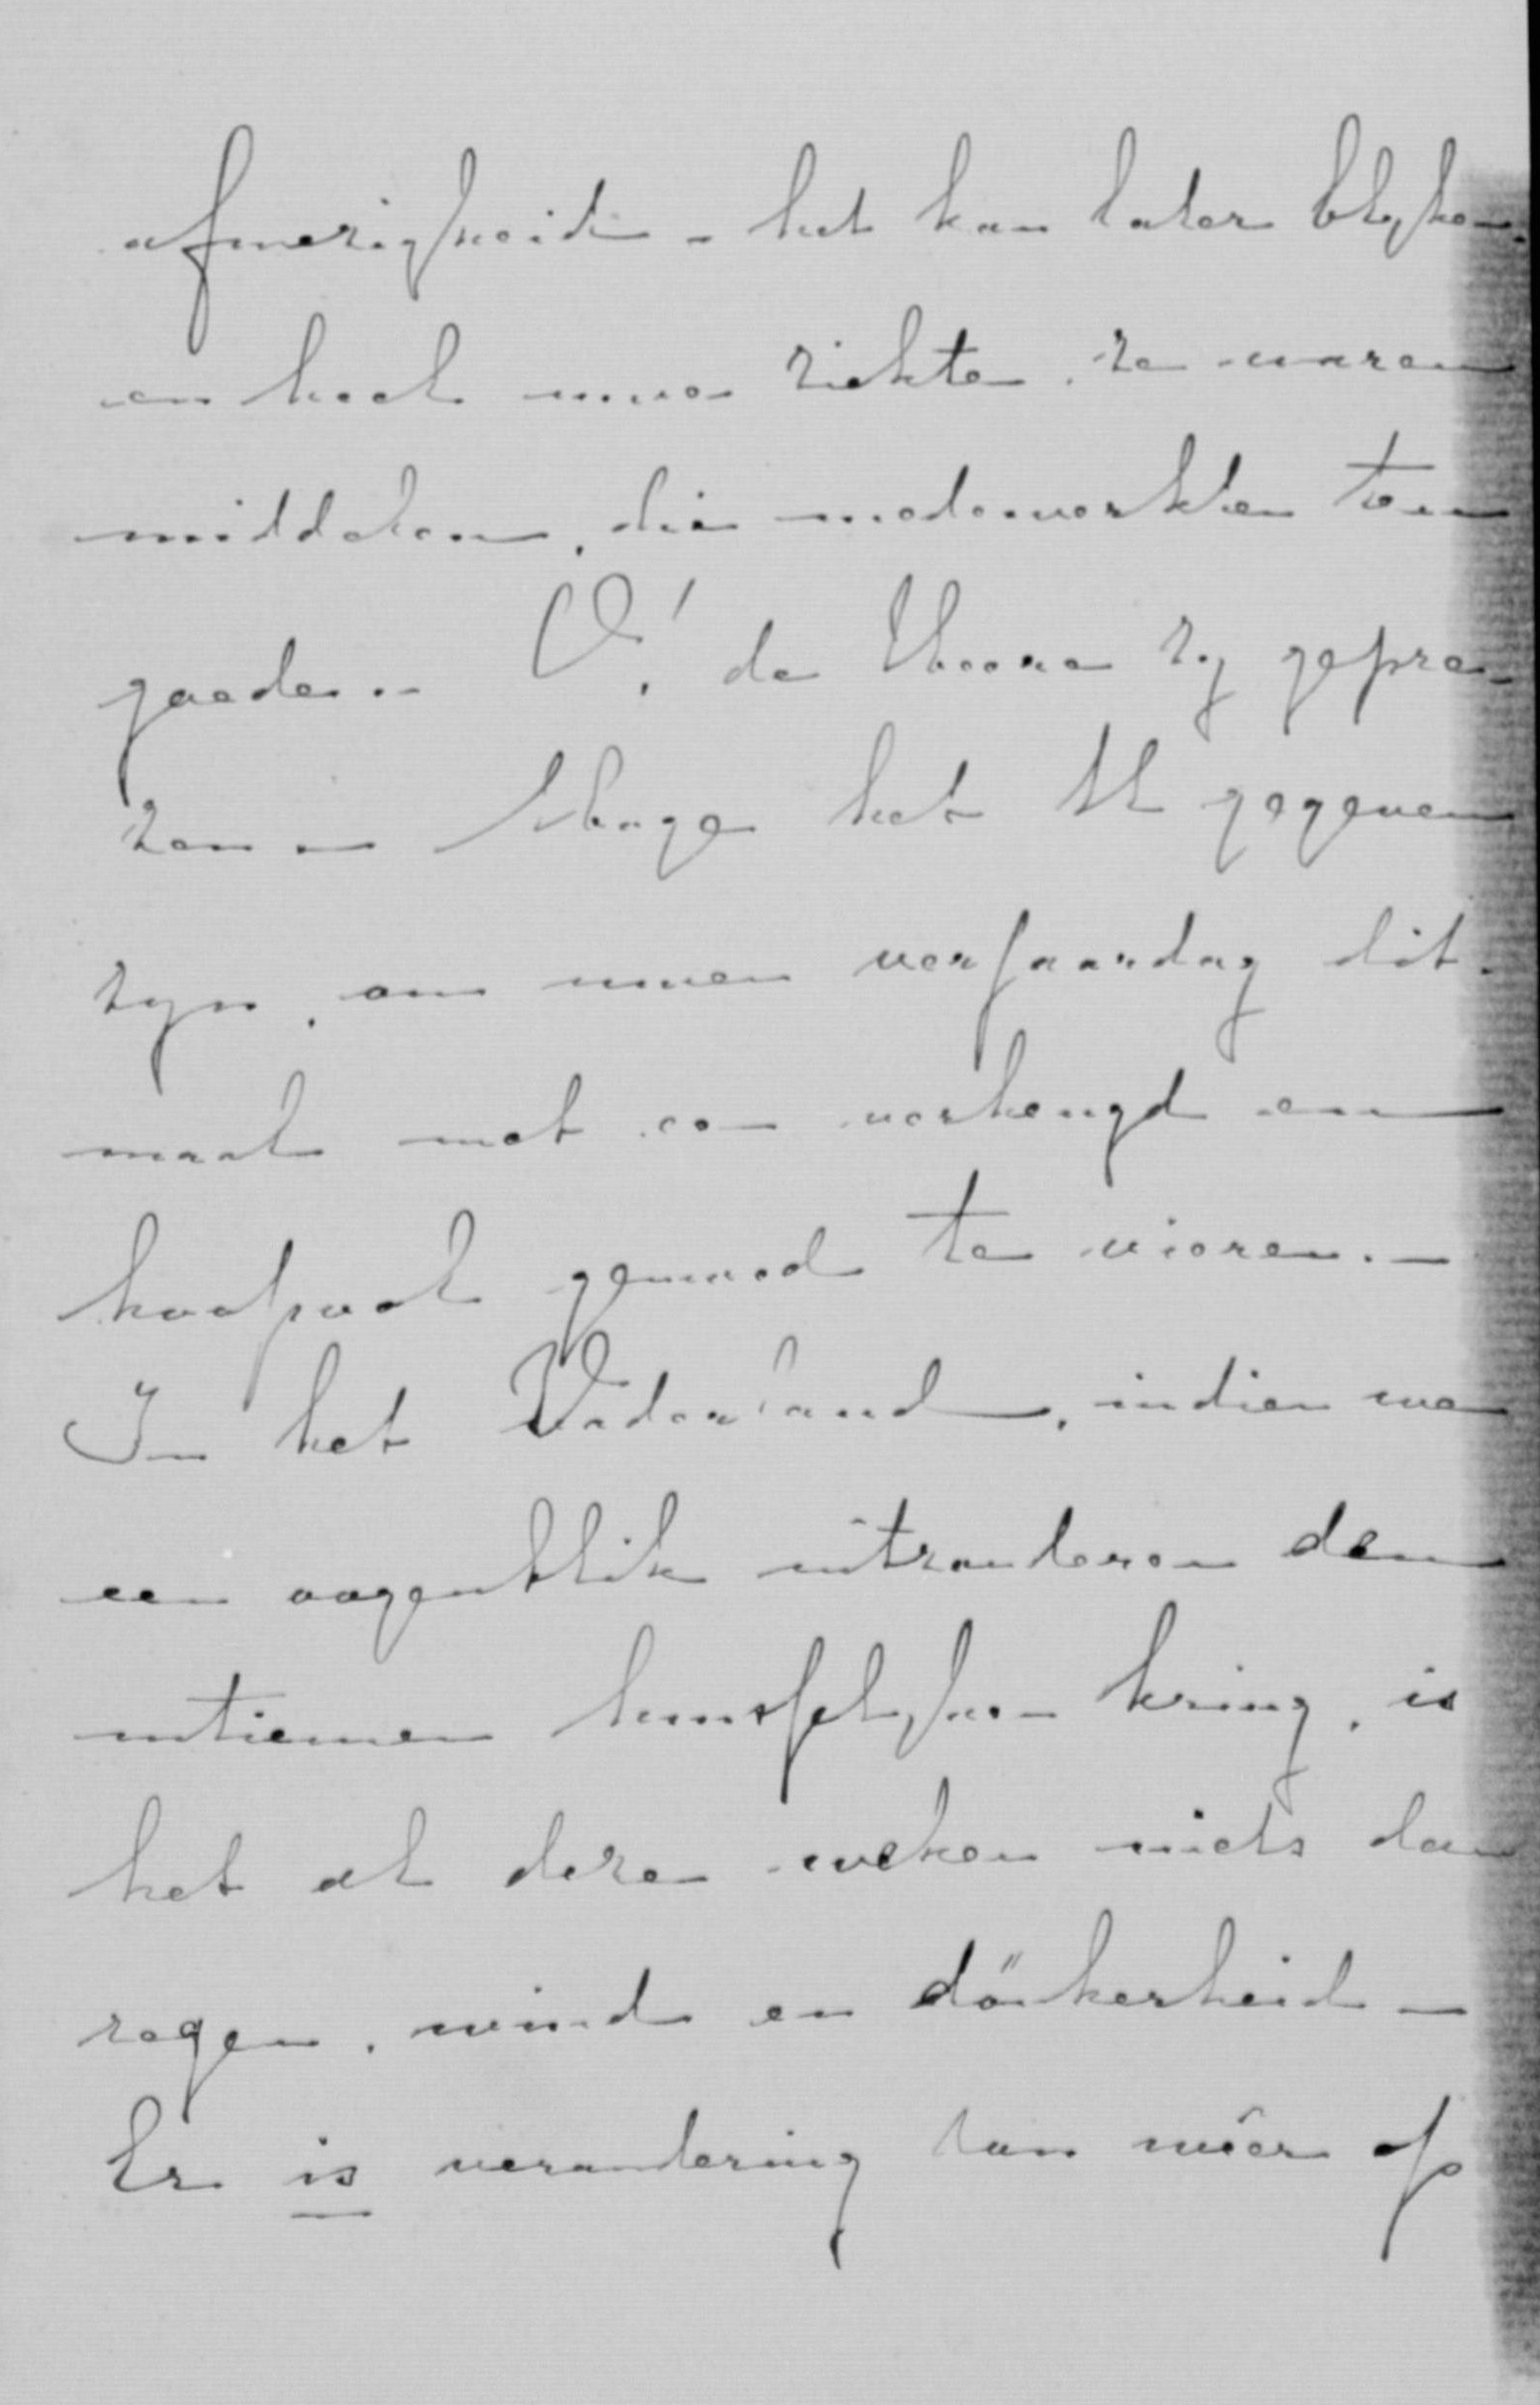 afwezigheid – het kan later blyken.
en heel uwe ziekte, ze waren
middelen, die medewerkten ten
goede. – O! de Heere zy gepre-
zen – Moge het U gegeven
zyn, om uwen verjaardag dit-
maal met een verheugd en
hoopvol gemoed te vieren. –
In het Vaderland, indien we
een oogenblik uitzonderen den
intiemen huiselyken kring, is
het al deze weken niets dan
regen, wind en donkerheid –
Er is verandering van weer op